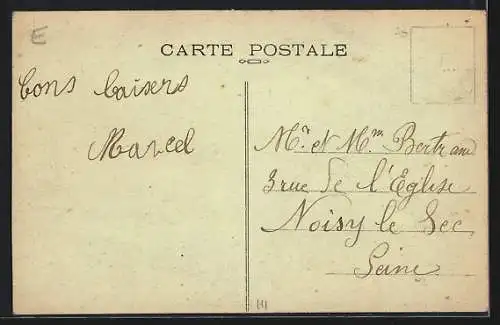 E
CARTE POSTALE
bons baisers
Marcel
Mr et Mm Bertrand
3 rue de l'Eglise
Noisy le Sec
Seine